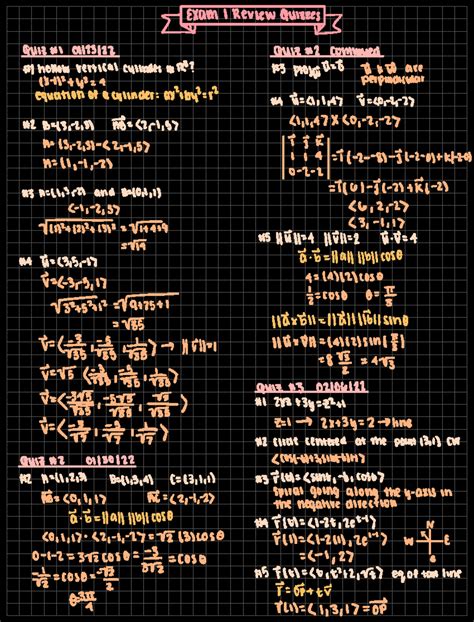 Exam 1 Review Quizzes
Quiz #1 01/23/22
#1 Hollow vertical cylinder in R³?
(x-1)² + y² = 4
equation of a cylinder = ax² + by² = r²
#2 B=(3,-2,3) AB=<2,-1,5>
A=(3,-2,3)-<2,-1,5>
A=(1,-1,-2)
#3 and B=(0,1,1)
<-1,-2,3>
√(1)²+(2)²+(3)² = √1+4+9
=√14
#4 u=<3,5,-1>
v=<-3,-5,1>
√3²+5²+1² = √9+25+1
=√35
v=<-3/√35, -5/√35, 1/√35> → ||v||=1
v=√5 <-3/√35, -5/√35, 1/√35>
v=<-3√5/√35, -5√5/√35, √5/√35>
v=<-3/√7, -5/√7, 1/√7>
Quiz #2 01/30/22
#2 A=(1,2,3) B=(1,3,4) C=(3,1,1)
AB=<0,1,1> AC=<2,-1,-2>
a·b=||a|| ||b|| cosθ
<0,1,1>·<2,-1,-2>=√2 (3)cosθ
0-1-2=3√2 cosθ = -3/3√2 = cosθ
θ=3π/4
Quiz #2 continued
#3 u & v are
perpendicular
#4 u=<1,1,4> v=<0,-2,-2>
<1,1,4> X <0,-2,-2>
i j k
1 1 4
0 -2 -2
=i(-2--8)-j(-2-0)+k(-2-0)
=i(6)-j(-2)+k(-2)
<6,2,-2>
<3,-1,1>
#5 ||u||=4 ||v||=2 u·v=4
a·b=||a|| ||b|| cosθ
4=(4)(2)cosθ
1/2=cosθ θ=π/3
||a×b||=||a|| ||b|| sinθ
||u×v||=(4)(2)sin(π/3)
=8 √3/2 = 4√3
Quiz #3 02/06/22
#1 2x+3y=z²+1
z=1 → 2x+3y=2 → line
#2 circle centered at the point (3,1) CW
#3 r(t)=<sint,-t,cost>
spiral going along the y-axis in
the negative direction
#4 r(t)=<1-2t,2e^(t-1)>
N
W E
=<-1,2>
#5 eq of tan line
r=OP+tv
r(1)=<1,3,1>=OP